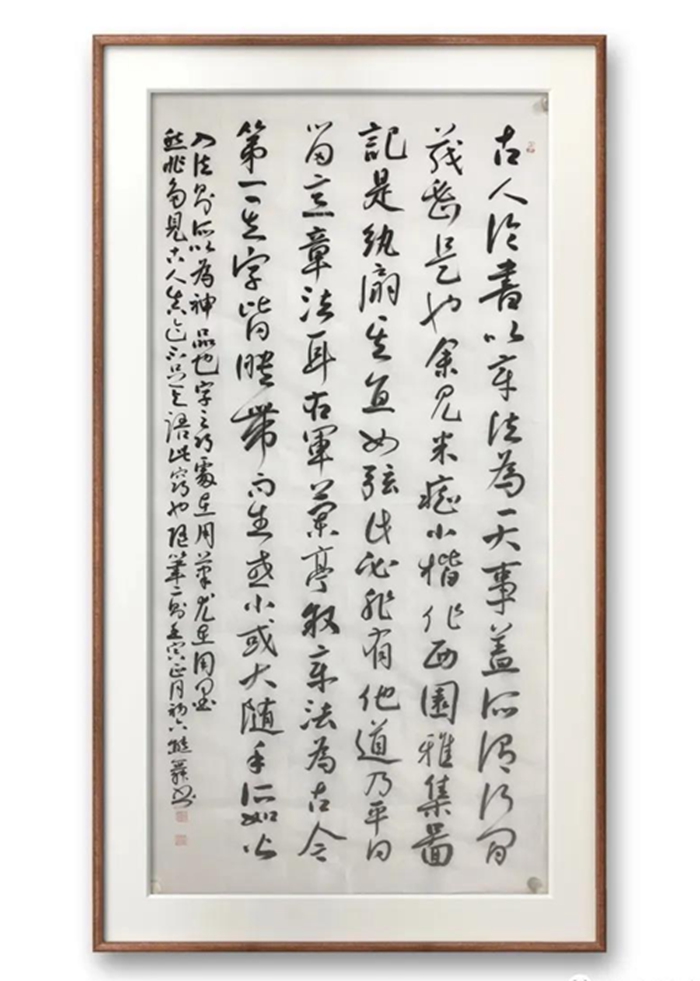 古人論書以章法為一大事蓋所謂行間
茂密是也余見米癡小楷作西園雅集圖
記是紈扇其直如弦此必非有他道乃平日
留意章法耳右軍蘭亭叙章法為古今
第一其字皆映帶而生或小或大随手所如皆
入法則所以為神品也字之巧處在用筆尤在用墨
然非多見古人真迹不足與語此竅也随筆二則壬寅正月初六